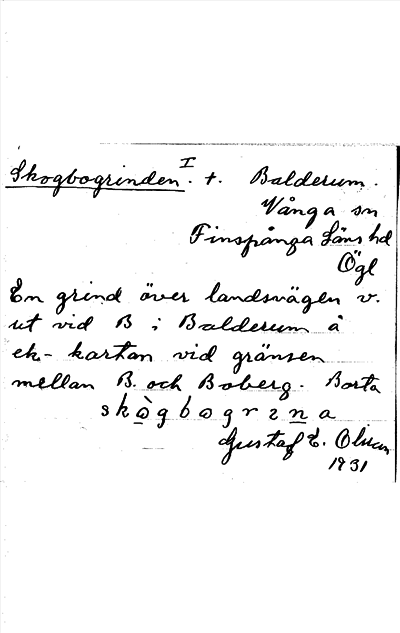 Skogbogrinden. I +. Balderum.
Vånga sn
Finspånga Läns hd
Ögl
En grind över landsvägen v.
ut vid B i Balderum å
ek-kartan vid gränsen
mellan B. och Boberg. Borta
skògbogrına
Gustaf E. Olsson
1931